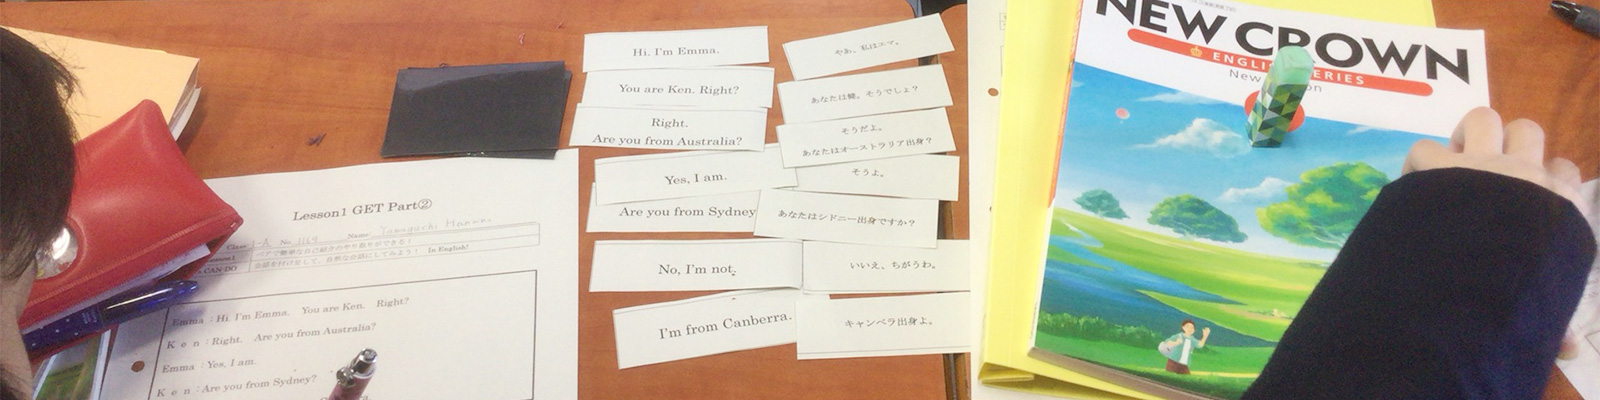 Lesson1 GET Part②
Class 1-A No. 1169 Name Yamaguchi
Lesson1 ペアで簡単な自己紹介のやり取りができる！
CAN-DO 会話を付け足して、自然な会話にしてみよう！ In English!
Emma : Hi, I'm Emma. You are Ken. Right?
Ken : Right. Are you from Australia?
Emma : Yes, I am.
Ken : Are you from Sydney?
Hi, I'm Emma.
You are Ken. Right?
Right.
Are you from Australia?
Yes, I am.
Are you from Sydney
No, I'm not.
I'm from Canberra.
やあ、私はエマ。
あなたは健。そうでしょ？
そうだよ。
あなたはオーストラリア出身？
そうよ。
あなたはシドニー出身ですか？
いいえ、ちがうわ。
キャンベラ出身よ。
NEW CROWN
ENGLI ERIES
New on